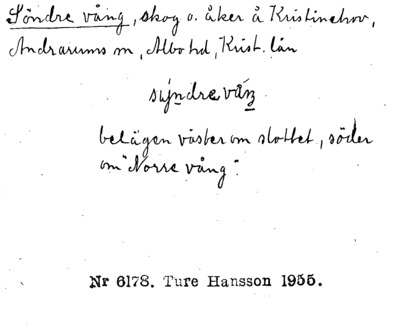 Söndre vång, skog o. åker å Kristinehov,
Andrarums sn, Albo hd, Krist. län
belägen väster om slottet, söder
om "Norre vång".
Nr 6178. Ture Hansson 1955.